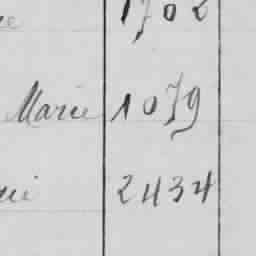 1702
Marie 1079
2434